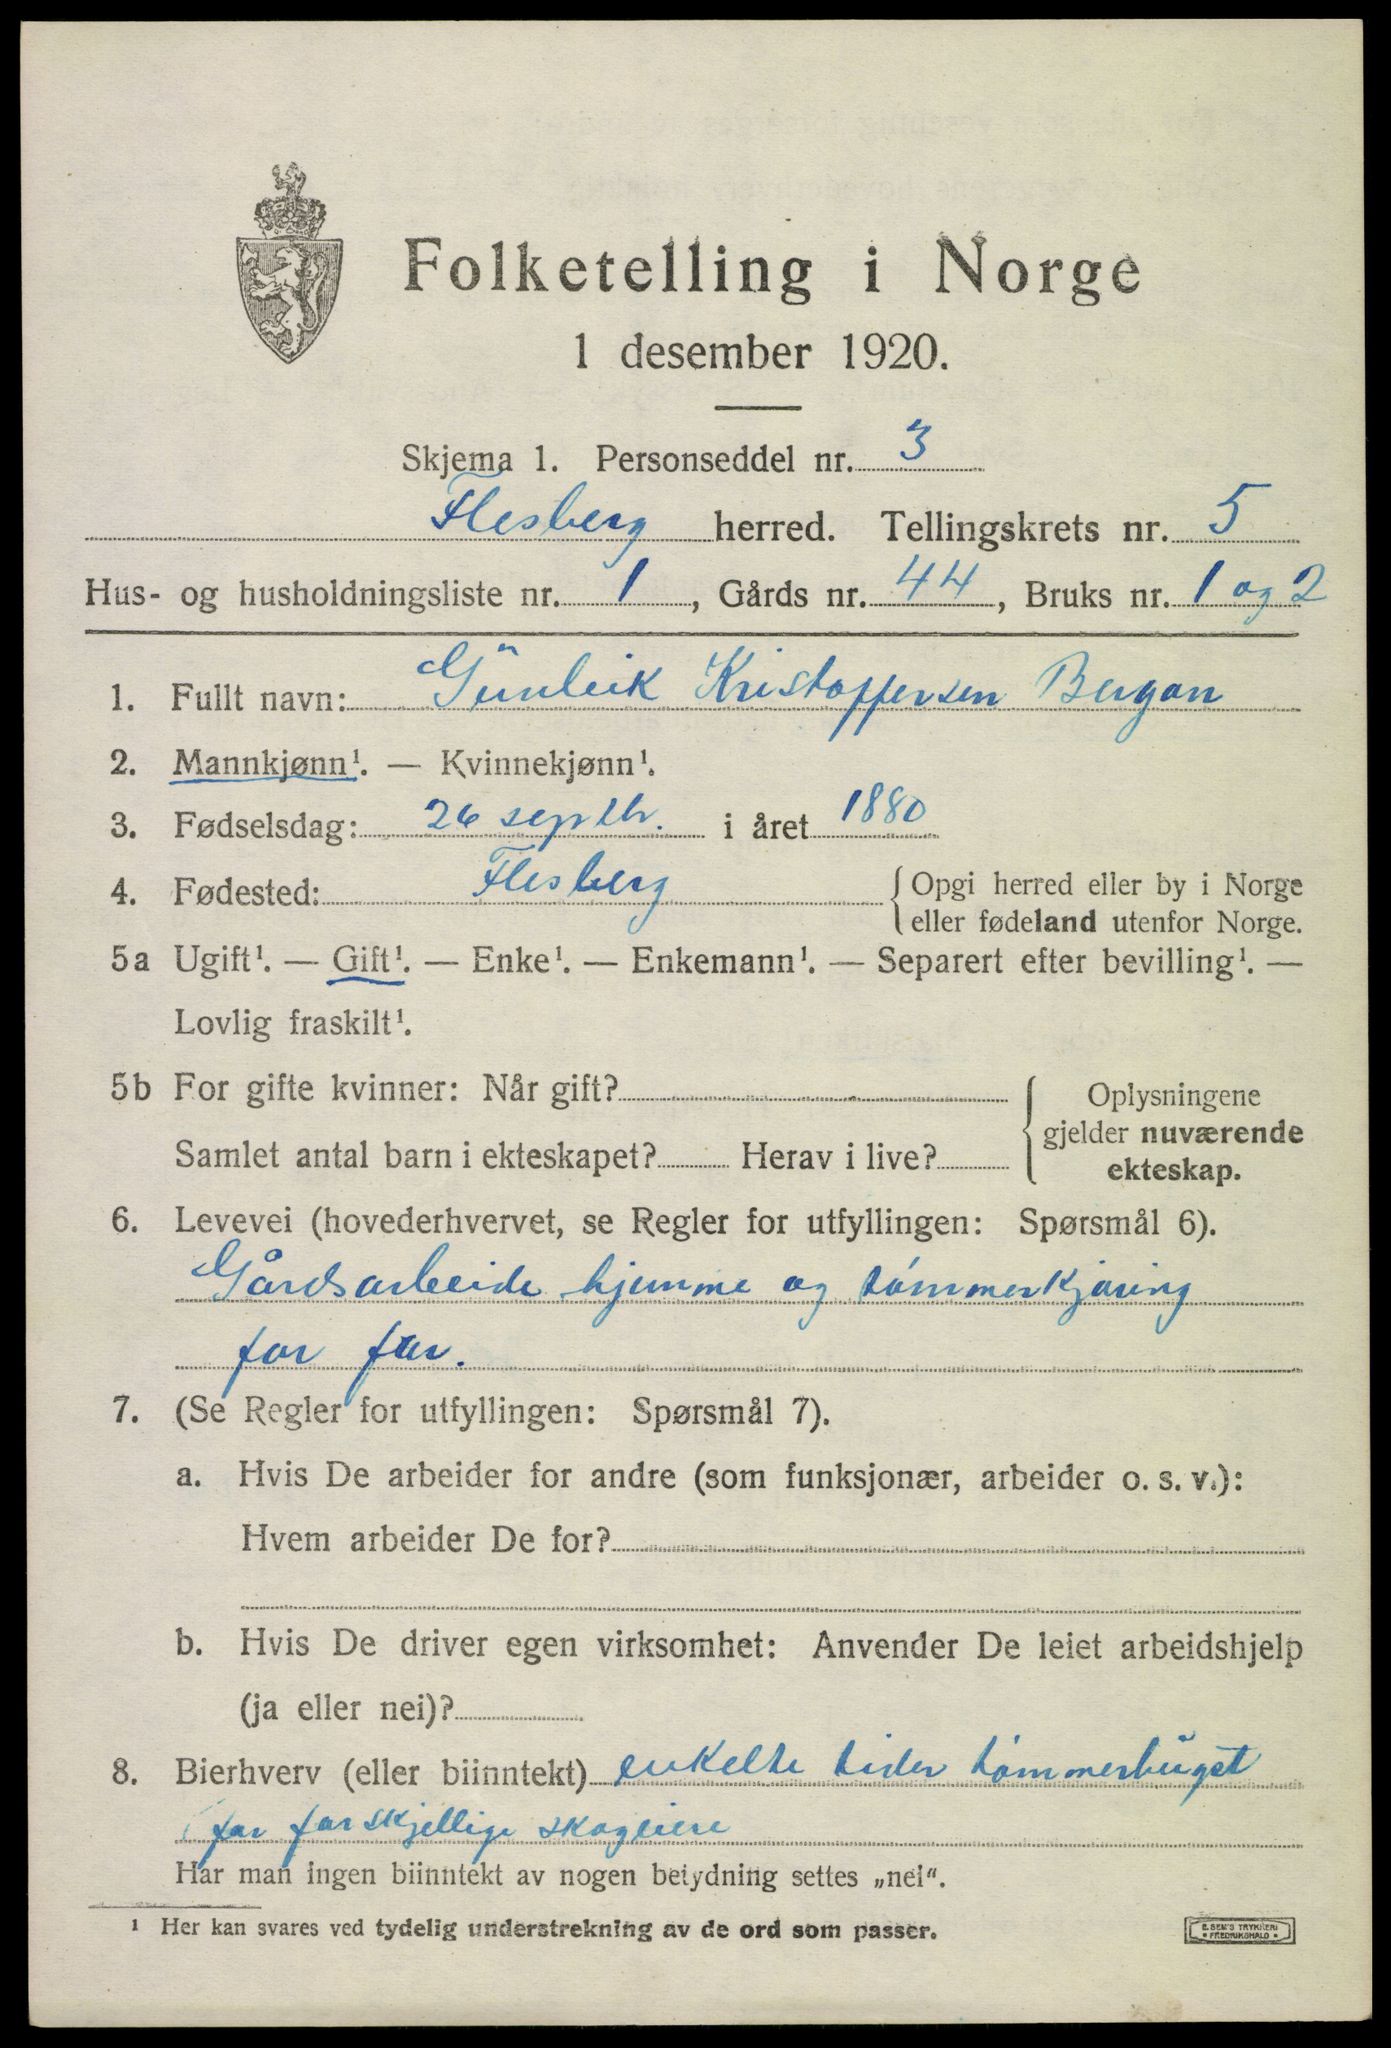 Folketelling i Norge
1 desember 1920.
Skjema 1. Personseddel nr. 3
Flesberg herred. Tellingskrets nr. 5
Hus- og husholdningsliste nr. 1, Gårds nr. 44, Bruks nr. 1 og 2
1. Fullt navn: Günleik Kristoppersen Bergan
2. Mannkjønn¹. — Kvinnekjønn¹.
3. Fødselsdag: 26 septbr. i året 1880
4. Fødested: Flesberg {Opgi herred eller by i Norge
eller fødeland utenfor Norge.
5a Ugift¹. — Gift¹. — Enke¹. — Enkemann¹. — Separert efter bevilling¹. —
Lovlig fraskilt¹.
5b For gifte kvinner: Når gift? {Oplysningene
gjelder nuværende
ekteskap.
Samlet antal barn i ekteskapet? Herav i live?
6. Levevei (hovederhvervet, se Regler for utfyllingen: Spørsmål 6).
Gårdsarbeide hjemme og tömmerkjöring
for far.
7. (Se Regler for utfyllingen: Spørsmål 7).
a. Hvis De arbeider for andre (som funksjonær, arbeider o. s. v.):
Hvem arbeider De for?
b. Hvis De driver egen virksomhet: Anvender De leiet arbeidshjelp
(ja eller nei)?
8. Bierhverv (eller biinntekt) enkelte tider tömmerhügst
for forskjellige skogeiere
Har man ingen biinntekt av nogen betydning settes „nei“.
¹ Her kan svares ved tydelig understrekning av de ord som passer.
E. SEM'S TRYKKERI
FREDRIKSHALD